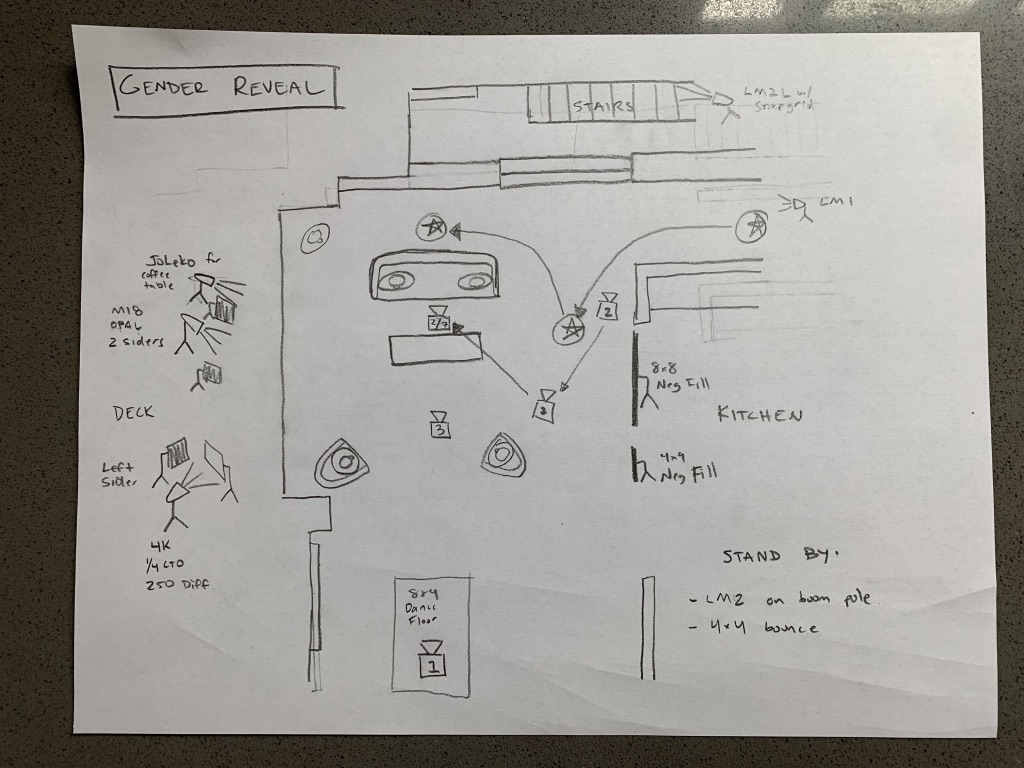 GENDER REVEAL
STAIRS
LM2L w/
Snapgrid
LM1
JoLeko for
coffee
table
M18
OPAL
2 siders
2/7
2
2
3
8x8
Neg Fill
KITCHEN
DECK
4x4
Neg Fill
Left
Sider
4K
1/4 CTO
250 Diff
8x4
Dance
Floor
1
STAND BY.
- LM2 on boom pole.
- 4x4 bounce